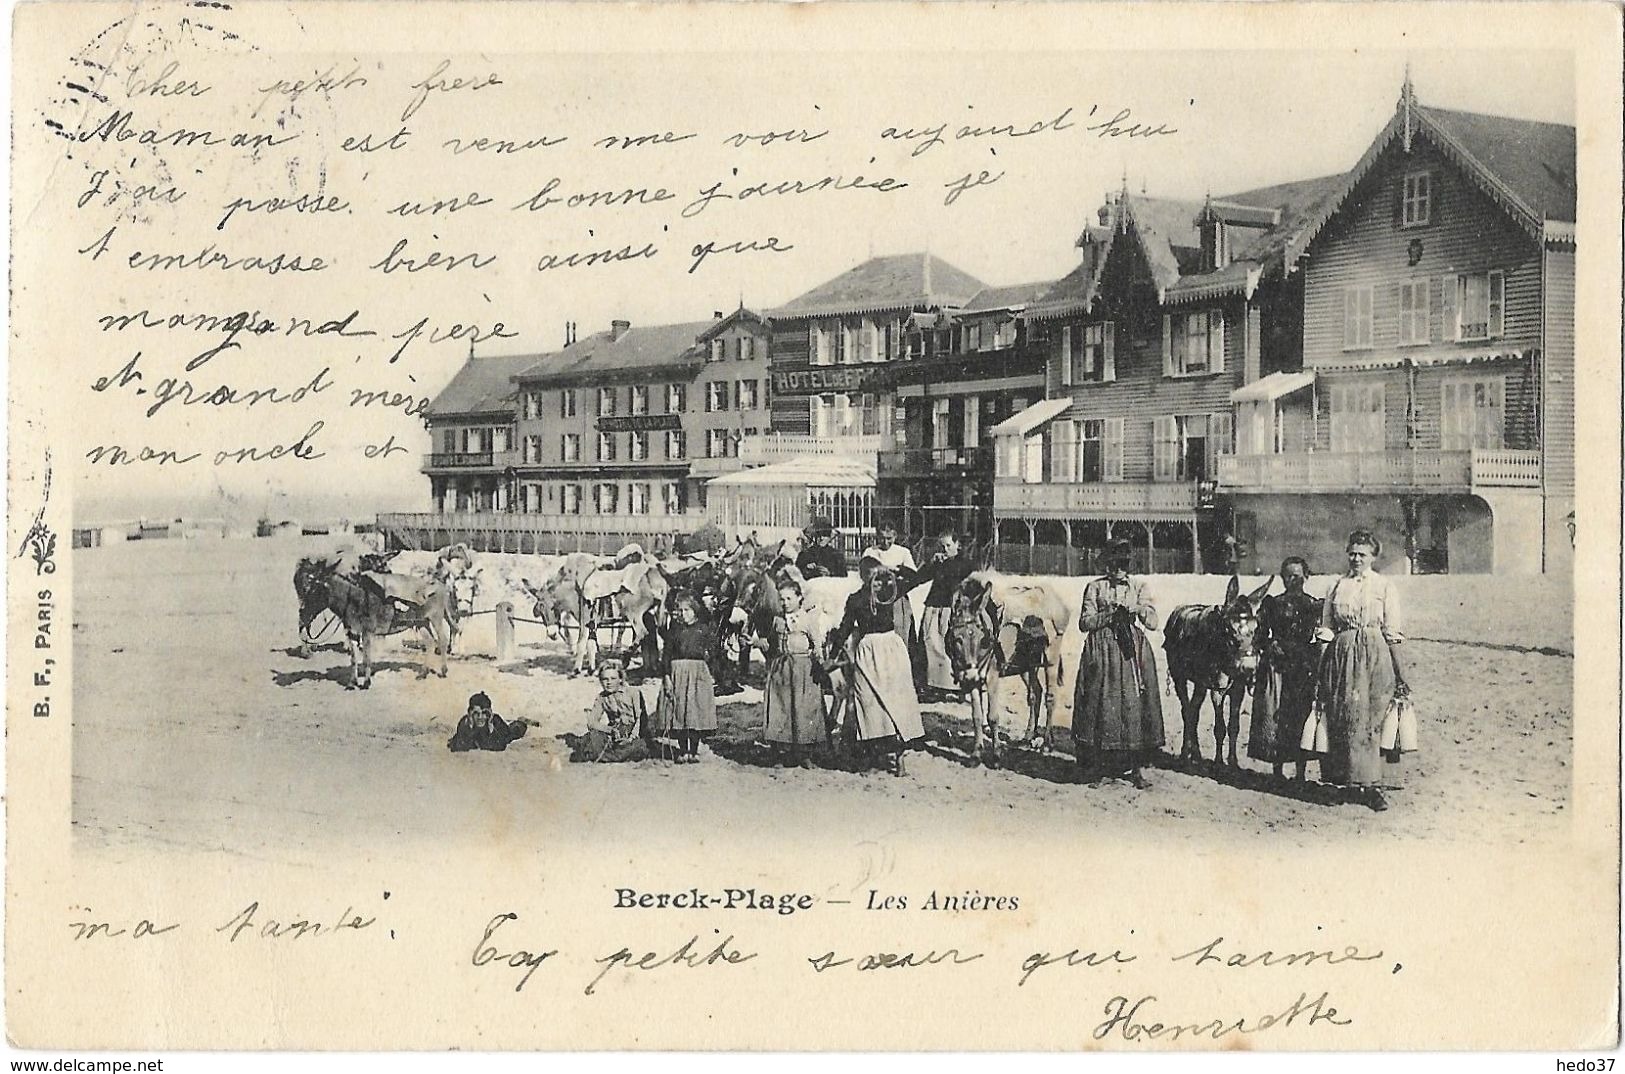 Cher petit frère
Maman est venu me voir aujourd'hui
J'ai passé une bonne journée jè
t'embrasse bien ainsi que
mon grand père
et grand mère
mon oncle et
HOTEL DE FR
B. F., PARIS
Berck-Plage — Les Anières
ma tante.
Ta petite sœur qui t'aime.
Henriette
delcampe.net
hedo37